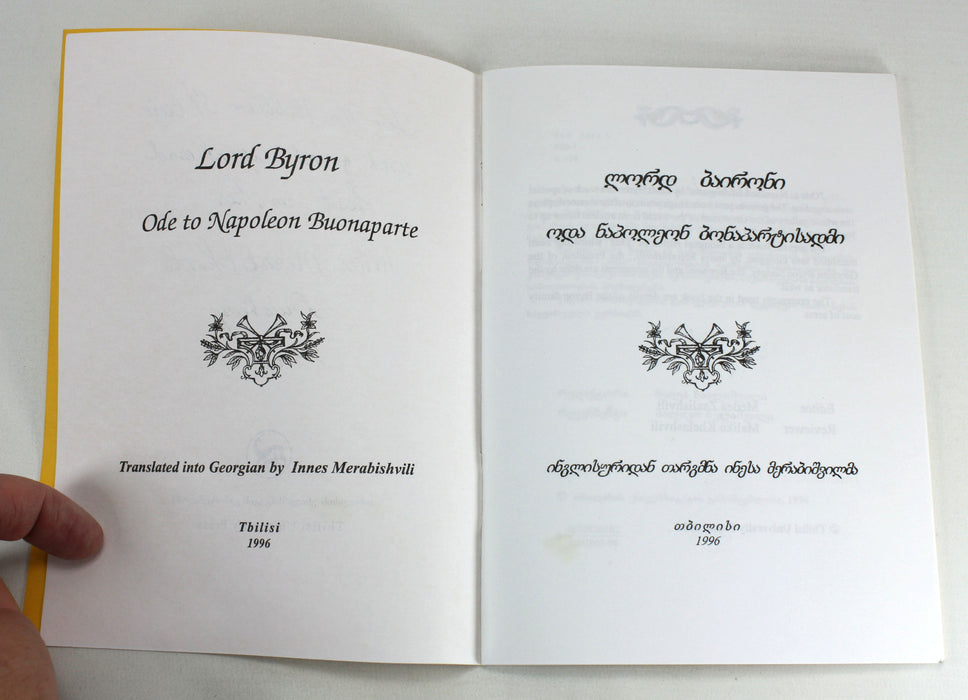 Lord Byron
Ode to Napoleon Buonaparte
Translated into Georgian by Innes Merabishvili
Tbilisi
1996
ლორდ ბაირონი
ოდა ნაპოლეონ ბონაპარტისადმი
ინგლისურიდან თარგმნა ინესა მერაბიშვილმა
თბილისი
1996